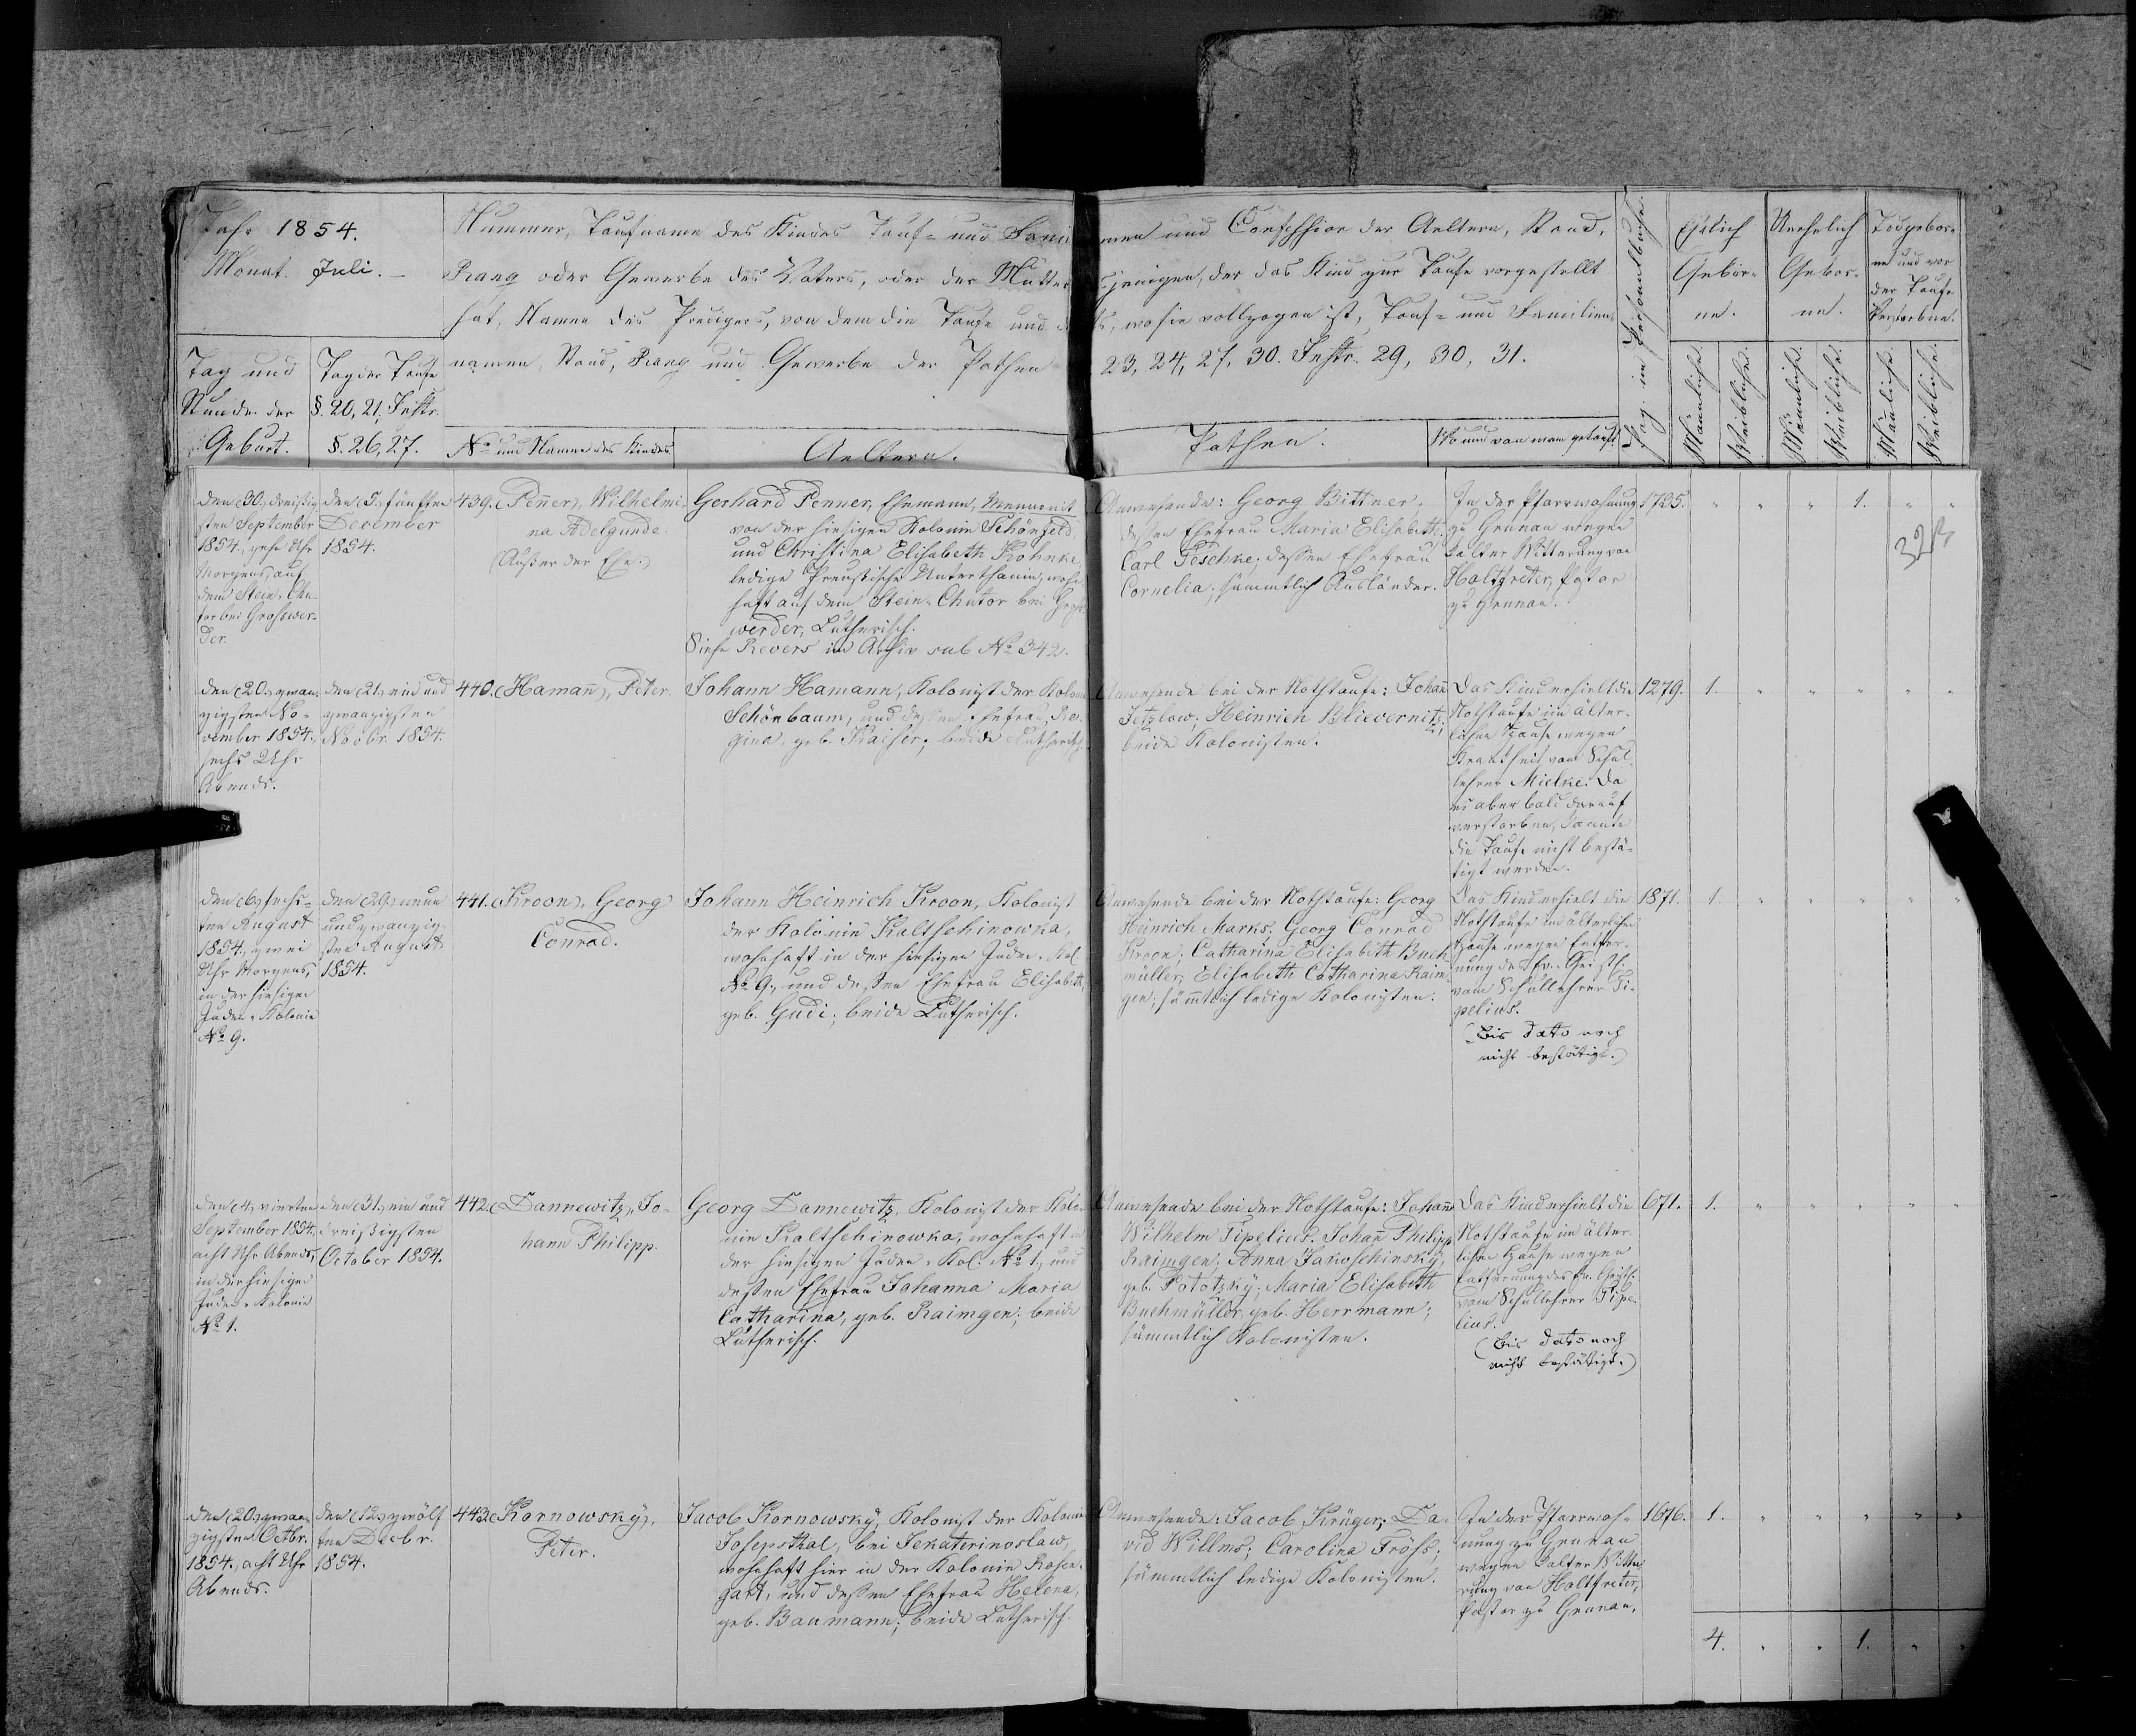 Jahr 1854.
Monat. Juli.
Tag und
Stunde der
Geburt.
Tag der Taufe
§. 20, 21. Instr.
§. 26, 27.
Nummer, Taufname des Kindes Tauf- und Fami
Rang oder Gewerbe des Vaters, oder der Mutter
hat, Namen des Predigers, von dem die Taufe und
namen, Stand, Rang und Gewerbe der Pathen
No und Name des Kindes
Aeltern.
men und Confession der Aeltern, Stand,
jenigen, der das Kind zur Taufe vorgestellt
wo sie vollzogen ist, Tauf- und Familien-
23, 24, 27, 30. Instr. 29, 30, 31.
Pathen.
Wo und von wem getauft.
Pag. im Personalbuche.
Ehelich
Gebor-
ne.
Unehelich
Gebor-
ne.
Todgebor-
ne und vor
der Taufe
Verstorbene.
Männliche.
Weibliche.
Männliche.
Weibliche.
Männliche.
Weibliche.
den (30.) dreißig
sten September
1854., zehn Uhr
Morgens, auf
dem Stein-Chu-
tor bei Großwer-
der.
den (5.) fünften
December
1854.
439. (Penner), Wilhelmi-
na Adelgunde.
(Außer der Ehe.)
Gerhard Penner, Ehemann, Mennonit
von der hiesigen Kolonie Schönfeld,
und Christina Elisabeth Kohnke,
ledige Preußische Unterthanin, wohn
haft auf dem Stein-Chutor bei Groß
werder, Lutherisch.
Siehe Revers im Archiv sub No 342.
Anwesende: Georg Bittner,
dessen Ehefrau Maria Elisabeth;
Carl Peschke; dessen Ehefrau
Cornelia; sämmtlich Ausländer.
In der Pfarrwohnung
zu Grunau wegen
kalter Witterung von
Holtfreter, Pastor
zu Grunau.
1735. " " " 1. " "
den (20.) zwan-
zigsten No-
vember 1854.,
sechs Uhr
Abends.
den (21.) ein und
zwanzigsten
Novbr. 1854.
440. (Hamañ), Peter.
Johann Hamann, Kolonist der Kolonie
Schönbaum, und dessen Ehefrau, Re-
gina, geb. Kaiser; beide Lutherisch.
Anwesende bei der Nothtaufe: Johañ
Jetzlaw; Heinrich Blievernitz;
beide Kolonisten.
Das Kind erhielt die
Nothtaufe im älter-
lichen Hause wegen
Krankheit vom Schul-
lehrer Mielke. Da
es aber bald darauf
verstorben, konnte
die Taufe nicht bestä-
tigt werden.
1279. 1. " " " " "
den (6.) sechs-
ten August
1854., zwei
Uhr Morgens,
in der hiesigen
Juden-Kolonie
No 9.
den (29.) neun
und zwanzig-
sten August
1854.
441. (Kroon), Georg
Conrad.
Johann Heinrich Kroon, Kolonist
der Kolonie Kaltschinowka,
wohnhaft in der hiesigen Juden-Kol.
No 9., und dessen Ehefrau Elisabeth,
geb. Gudi; beide Lutherisch.
Anwesende bei der Nothtaufe: Georg
Heinrich Marks; Georg Conrad
Kroon; Catharina Elisabeth Buch
müller; Elisabeth Catharina Raim
gen; sämmtlich ledige Kolonisten.
Das Kind erhielt die
Nothtaufe im älterlichen
Hause wegen Entfer-
nung des Hr. Geistl.
vom Schullehrer Ti-
pelius.
(Bis dato noch
nicht bestätigt.)
1871. 1. " " " " "
den (4.) vierten
September 1854.,
acht Uhr Abends,
in der hiesigen
Juden-Kolonie
No 1.
den (31.) ein und
dreißigsten
October 1854.
442. (Dannewitz), Jo-
hann Philipp.
Georg Dannewitz, Kolonist der Kolo-
nie Kaltschinowka, wohnhaft in
der hiesigen Juden-Kol. No 1., und
dessen Ehefrau Johanna Maria
Catharina, geb. Raimgen; beide
Lutherisch.
Anwesende bei der Nothtaufe: Johann
Wilhelm Tipelius; Johañ Philipp
Raimgen; Anna Jakoschinsky,
geb. Pototzky; Maria Elisabeth
Buchmüller, geb. Herrmann;
sämmtlich Kolonisten.
Das Kind erhielt die
Nothtaufe im älter-
lichen Hause wegen
Entfernung des Hr. Geistl.
vom Schullehrer Tipe-
lius.
(Bis dato noch
nicht bestätigt.)
671. 1. " " " " "
den (20.) zwan
zigsten Octbr.
1854., acht Uhr
Abends.
den (12.) zwölf
ten Decbr.
1854.
443. (Kornowsky),
Peter.
Jacob Kornowsky, Kolonist der Kolonie
Josepsthal, bei Jekaterinoslaw,
wohnhaft hier in der Kolonie Rosen-
gart, und dessen Ehefrau Helena,
geb. Baumann; beide Lutherisch.
Anwesende: Jacob Krüger; Da-
vid Willms; Carolina Fröhs;
sämmtlich ledige Kolonisten.
In der Pfarrwoh-
nung zu Grunau
wegen kalter Witte
rung von Holtfreter,
Pastor zu Grunau.
1676. 1. " " " " "
4. " " 1. " "